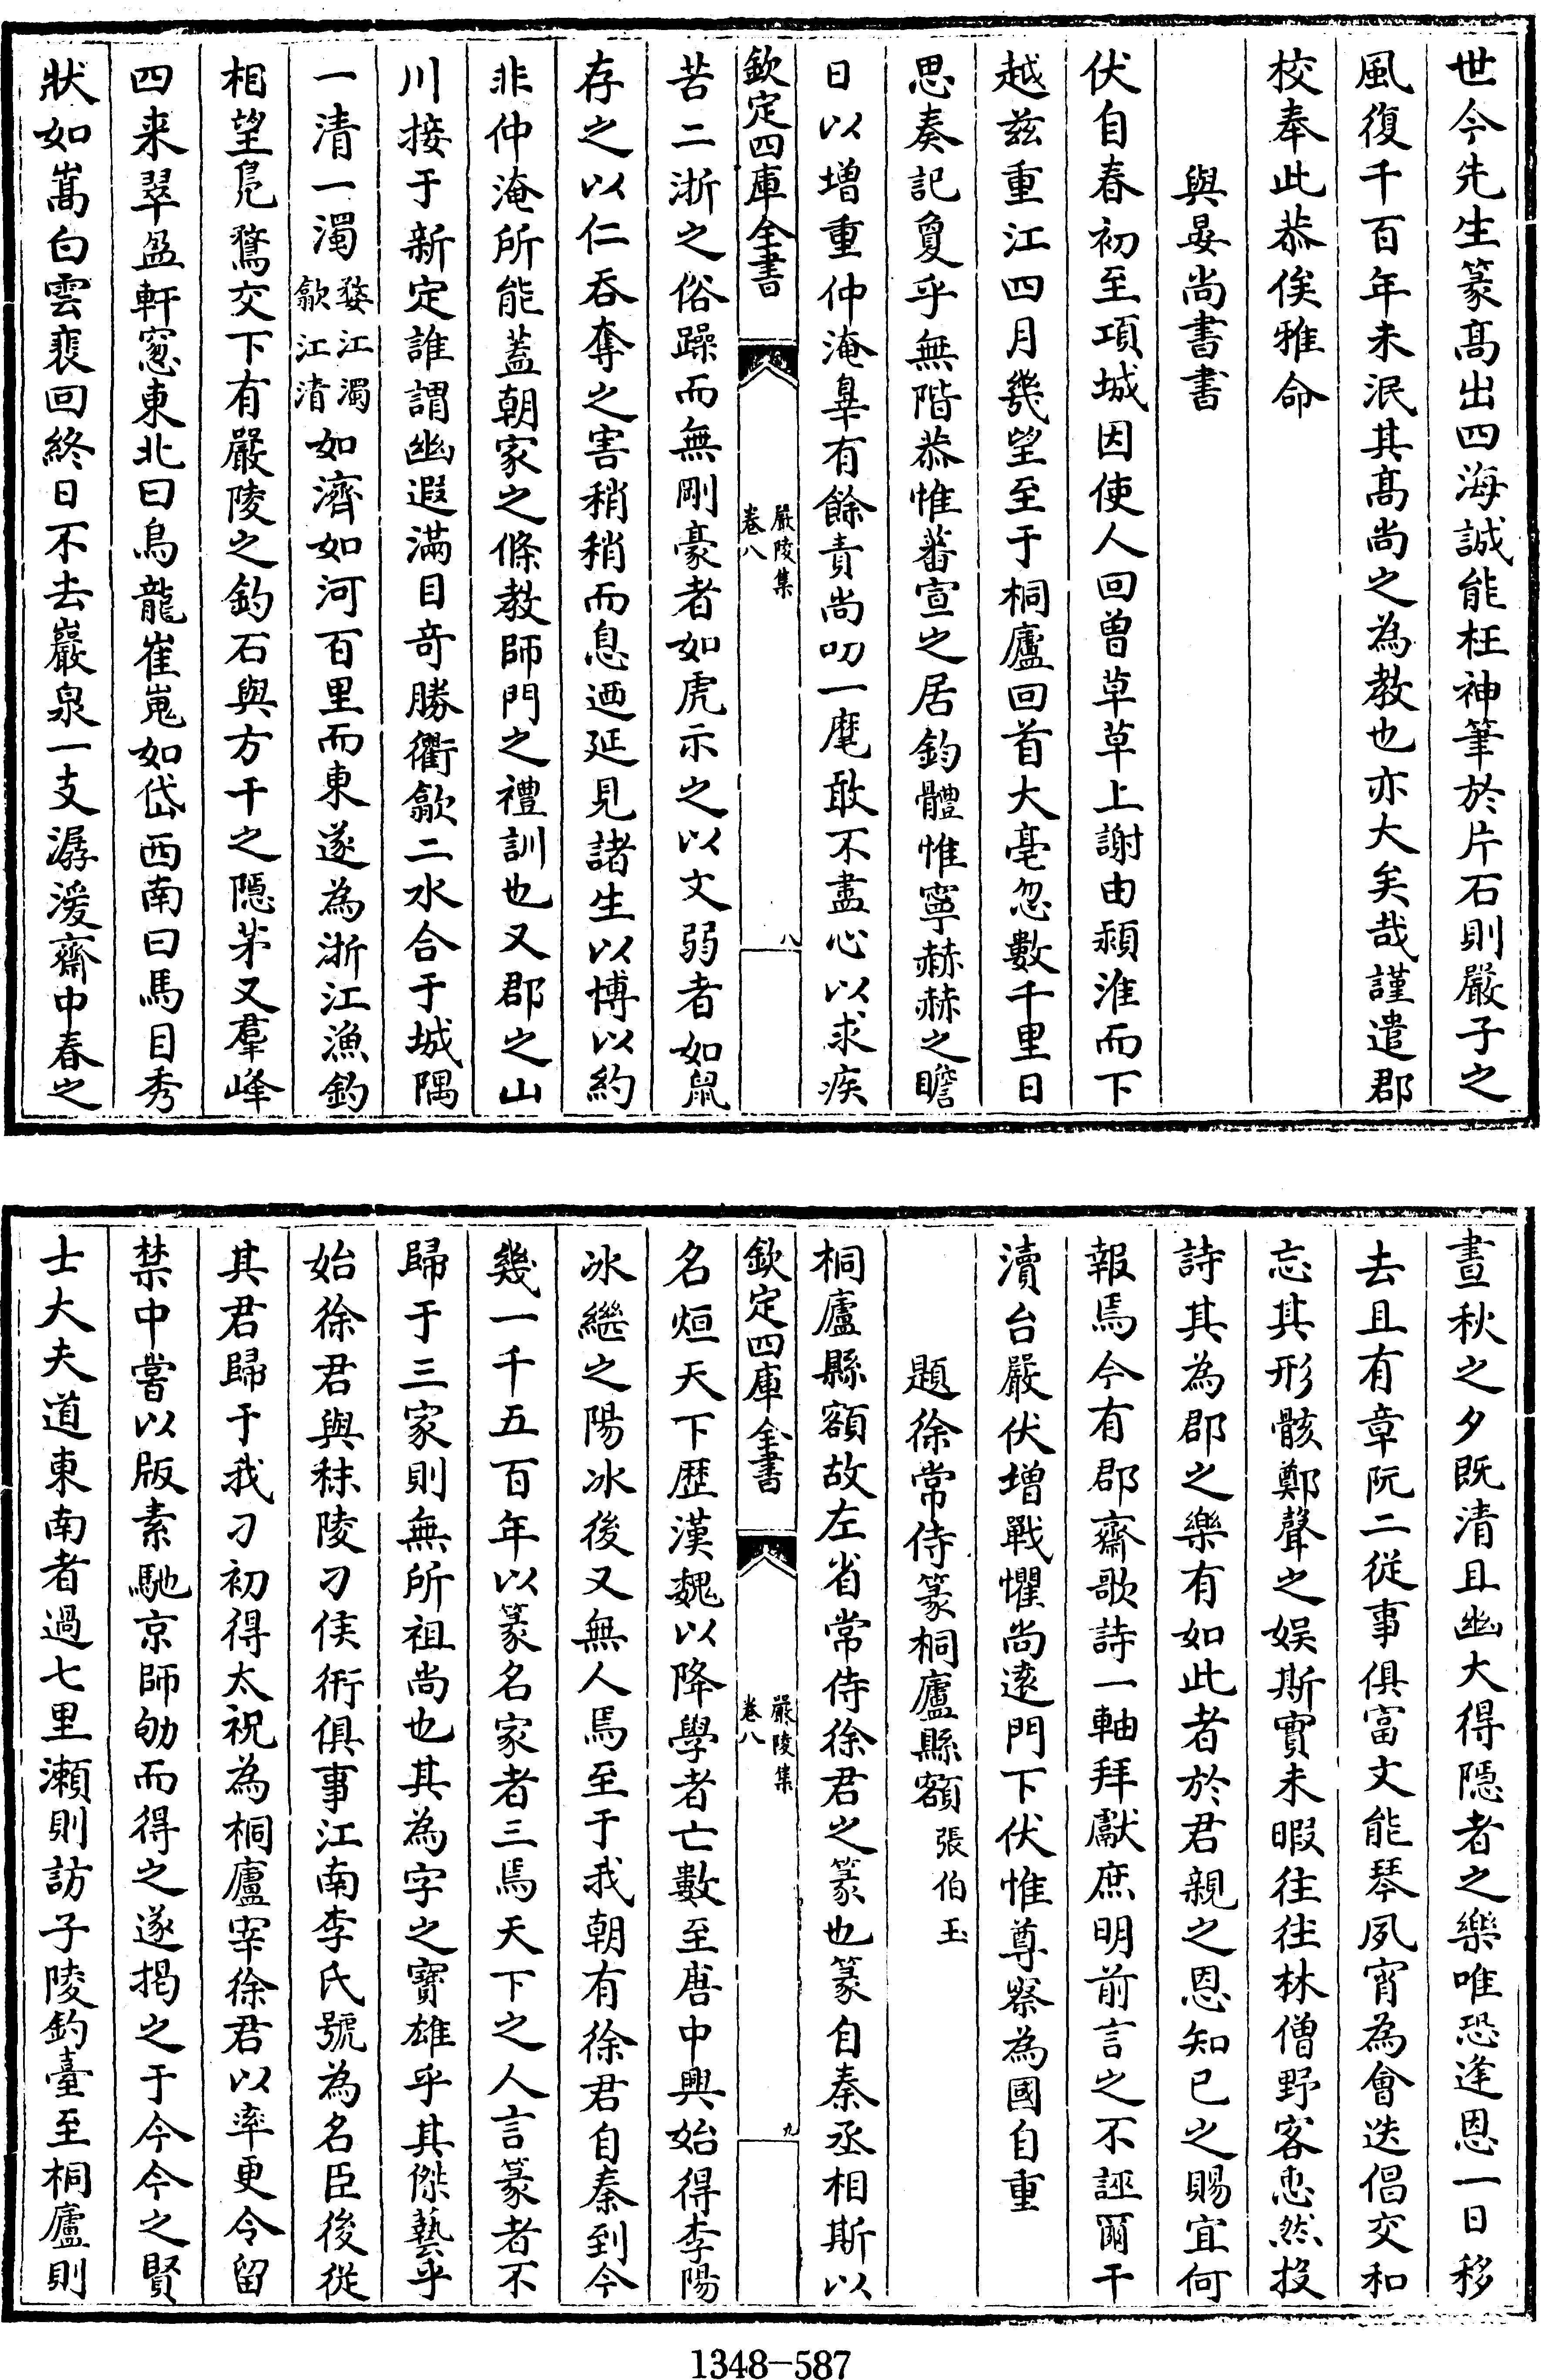 世今先生篆髙出四海誠能枉神筆於片石則嚴子之
風復千百年未泯其髙尚之為教也亦大矣哉謹遣郡
校奉此恭俟雅命
與晏尚書書
伏自春初至項城因使人回曽草草上謝由潁淮而下
越兹重江四月幾望至于桐廬回首大亳忽數千里日
思奏記敻乎無階恭惟蕃宣之居鈞體惟寧赫赫之瞻
日以增重仲淹辠有餘責尚叨一麾敢不盡心以求疾
欽定四庫全書
嚴陵集
卷八
八
苦二浙之俗躁而無剛豪者如虎示之以文弱者如鼠
存之以仁吞奪之害稍稍而息迺延見諸生以博以約
非仲淹所能蓋朝家之條教師門之禮訓也又郡之山
川接于新定誰謂幽遐滿目竒勝衢歙二水合于城隅
一清一濁婺江濁歙江清如濟如河百里而東遂為浙江漁釣
相望鳬鶩交下有嚴陵之釣石與方干之隱茅又羣峰
四来翠盈軒窓東北曰烏龍崔嵬如岱西南曰馬目秀
狀如嵩白雲裵回終日不去巖泉一支潺湲齋中春之
晝秋之夕既清且幽大得隱者之樂唯恐逢恩一日移
去且有章阮二従事俱富文能琴夙宵為會迭倡交和
忘其形骸鄭聲之娱斯實未暇往往林僧野客惠然投
詩其為郡之樂有如此者於君親之恩知已之賜宜何
報焉今有郡齋歌詩一軸拜獻庶明前言之不誣爾干
瀆台嚴伏增戰懼尚逺門下伏惟尊察為國自重
題徐常侍篆桐廬縣額 張伯玉
桐廬縣額故左省常侍徐君之篆也篆自秦丞相斯以
欽定四庫全書
嚴陵集
卷八
九
名烜天下歴漢魏以降學者亡數至唐中興始得李陽
冰繼之陽冰後又無人焉至于我朝有徐君自秦到今
幾一千五百年以篆名家者三焉天下之人言篆者不
歸于三家則無所祖尚也其為字之寶雄乎其傑藝乎
始徐君與秣陵刁侯衎俱事江南李氏號為名臣後從
其君歸于我刁初得太祝為桐廬宰徐君以率更令留
禁中嘗以版素馳京師劬而得之遂掲之于今今之賢
士大夫道東南者過七里瀬則訪子陵釣臺至桐廬則
1348-587